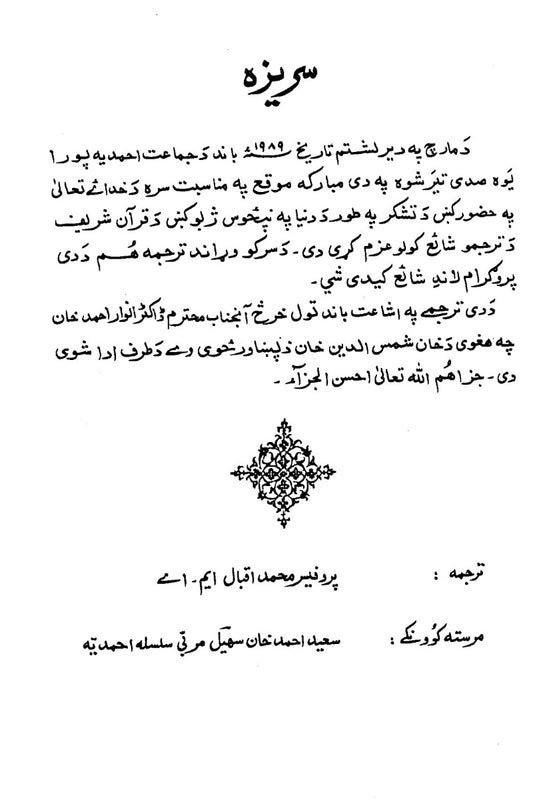 سریزه
دَ مارچ په دیرلشتم تاریخ ۱۹۸۹ء باند دَ جماعت احمدیه پورا
یوه صدی تیره شوه په دی مبارکه موقع په مناسبت سره دَ خدائے تعالیٰ
په حضور کښ دَ تشکر په طور دَ دنیا په پنځوس ژبو کښ دَ قرآن شریف
دَ ترجمو شائع کولو عزم کړی دی۔ دَ سرکو وړاند ترجمه هم دَ دی
پروګرام لاند شائع کیدی شي۔
دَ دی ترجمے په اشاعت باند ټول خرڅ آنجناب محترم ډاکټر انوار احمد خان
چه هغوی دَ خان شمس الدین خان دَ پښاور ځوی وے دَ طرف ادا شوی
دی۔ جزاهُم الله تعالیٰ احسن الجزآء۔
ترجمه : پروفیسر محمد اقبال ایم۔ اے
مرسته کوونکے : سعید احمد خان سهیل مربّی سلسله احمدیّه